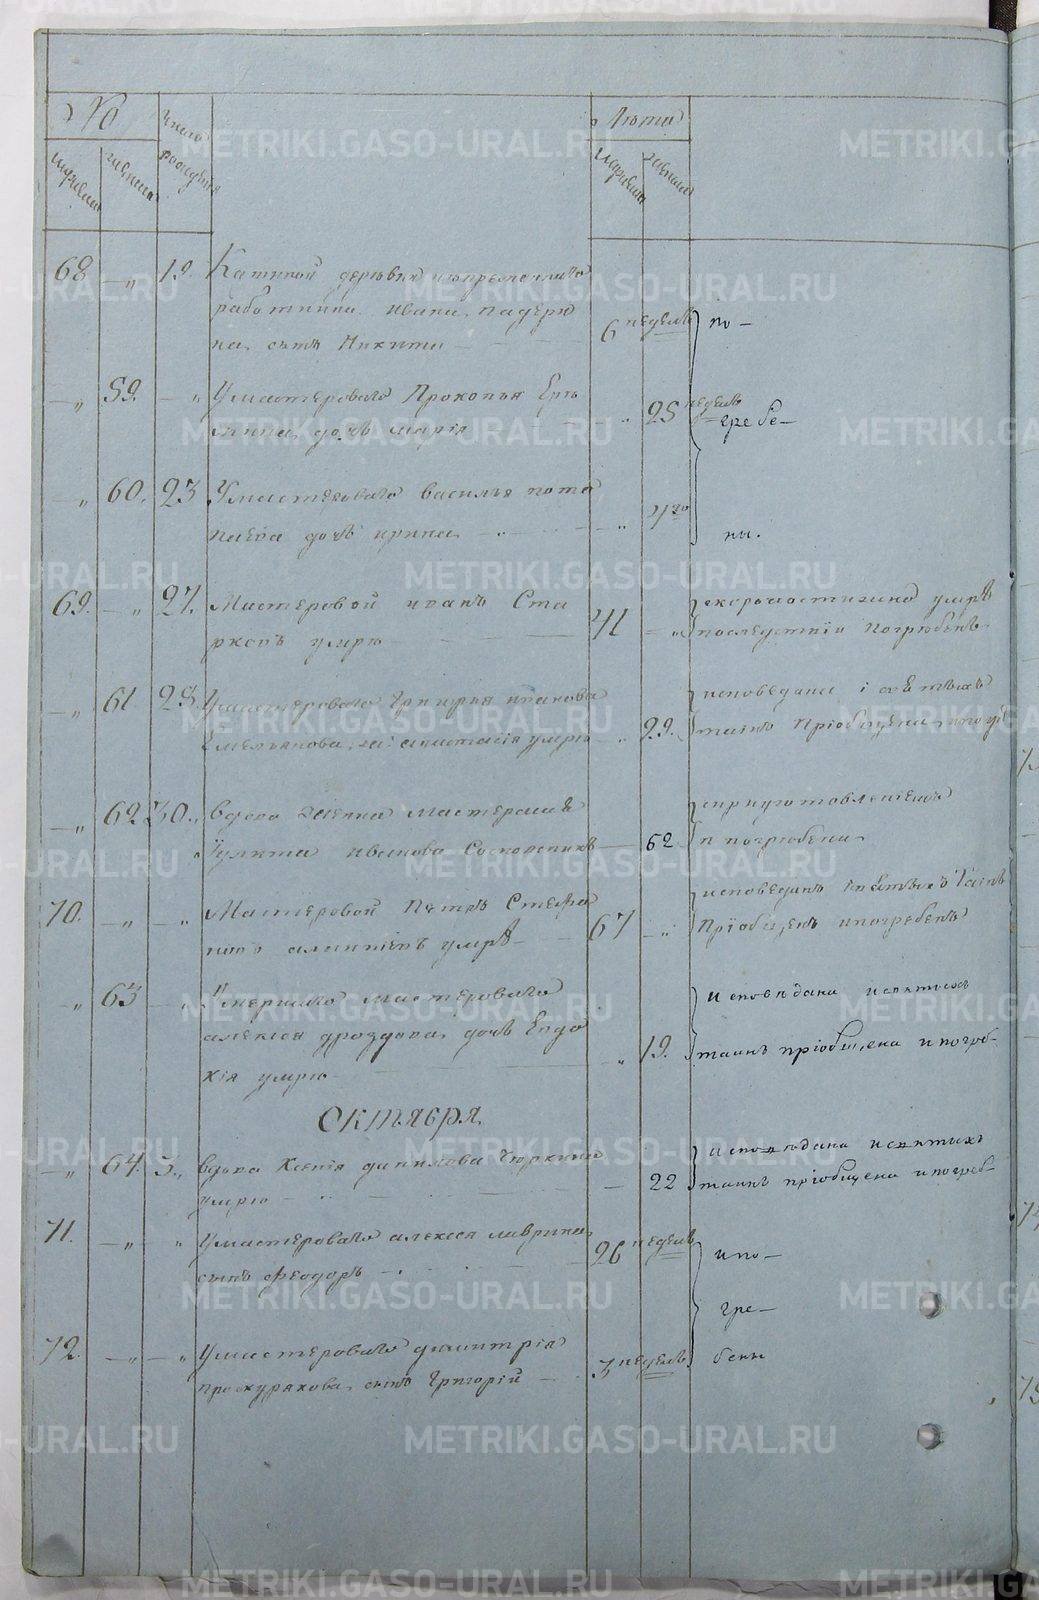 №
Число рождения
Лѣта
мужеска
женска
мужеска
женска
68 „ 19.
деревни непременнаго
работника Ивана Падери
на, сынъ Никита
6 недель
по-
„ 59. „ Умастероваго Прокопья Ере
мина, дочь Марiя
„ 25 недель
гребе-
„ 60. 23 Умастероваго василья пота
паева дочь ирина
„
ны.
69. „ 27. Мастеровой иванъ Ста
рковъ умре
41 „ умрѣ
погребенъ
„ 61 28. Умастероваго Григорья иванова
Емельянова, анастасiя умре
„ 29.
исповедана i святыхъ
таинъ Прiобщена
„ 62 30. вдова женка мастерская
Улита иванова
62
погребена
70. „ „ Мастеровой Петръ Стефа
новъ умрѣ
67 „
исповеданъ святыхъ Таинъ
Прiобщенъ ипогребенъ
„ 63 „ Умершаго мастероваго
алексея дроздова, дочь Евдо
кiя умре
„ 19.
исповѣдана исвятыхъ
таинъ прiобщена ипогреб-
Октября
„ 64. 3. „ вдова Ксенiя данилова Тюркина
умре
22
исповѣдана исвятыхъ
таинъ прiобщена ипогреб-
71. „ „ Умастероваго алексея лаврина,
сынъ Феодоръ
26 недель
ипо-
гре-
72. „ „ Умастероваго димитрiя
проскурякова, сынъ Григорiй
3 недель
бены
METRIKI.GASO-URAL.RU